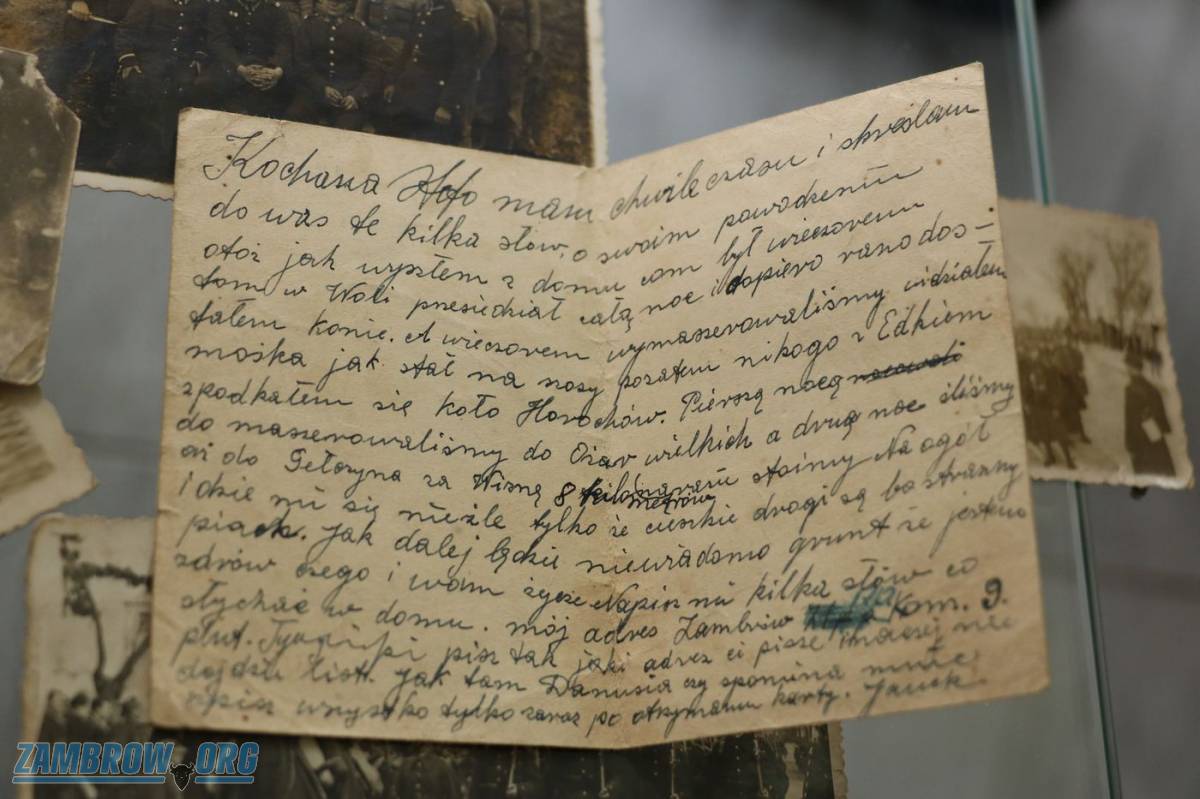 Kochana Zofo mam chwile czasu i skreślam
do was te kilka słów, o swoim powodzeniu
otóż jak wyszłem z domu tom był wieczorem
tam w Woli presiedział całą noc i dopiero rano dos-
tałem konie. A wieczorem wymaszerowaliśmy widziałem
mośka jak stał na szosy pozatem nikogo z Edkiem
spodkałem się koło Horochów. Pierszą nocą nocowali
do maszerowaliśmy do Ożar wielkich a drugą noc śliśmy
aż do Gełczyna za Wizną 8 kilo metrów stoimy Na ogół
idzie mi się nieźle tylko że cieżkie drogi są bo straszny
piach. Jak dalej będzie niewiadomo grunt że jestem
zdrów czego i wam życze Napisz mi kilka słów co
słychać w domu. mój adres Zambrów Kom. 9.
plut. pisz tak jaki adres ci pisze inaczej nie
dojdzie list. Jak tam Danusia czy spomina mnie
wszystko tylko zaraz po otrzymaniu karty. Janek
ZAMBROW.ORG